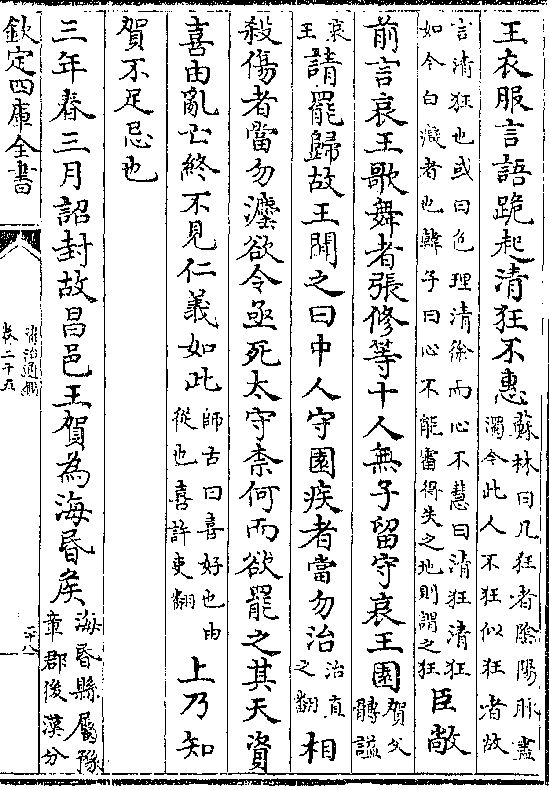 王衣服言語跪起清狂不惠蘇林曰凡狂者陰陽脉盡
濁今此人不狂似狂者故
言清狂也或曰色理清徐而心不慧曰清狂清狂
如今白癡者也韓子曰心不能審得失之地則謂之狂臣敞
前言哀王歌舞者張修等十人無子留守哀王園賀父
髆謚
哀
王請罷歸故王聞之曰中人守園疾者當勿治治直
之翻相
殺傷者當勿灋欲令亟死太守柰何而欲罷之其天資
喜由亂亡終不見仁義如此師古曰喜好也由
從也喜許吏翻上乃知
賀不足忌也
三年春三月詔封故昌邑王賀為海昏矦海昏縣屬豫
章郡後漢分
欽定四庫全書
資治通鑑
卷二十五
二十八